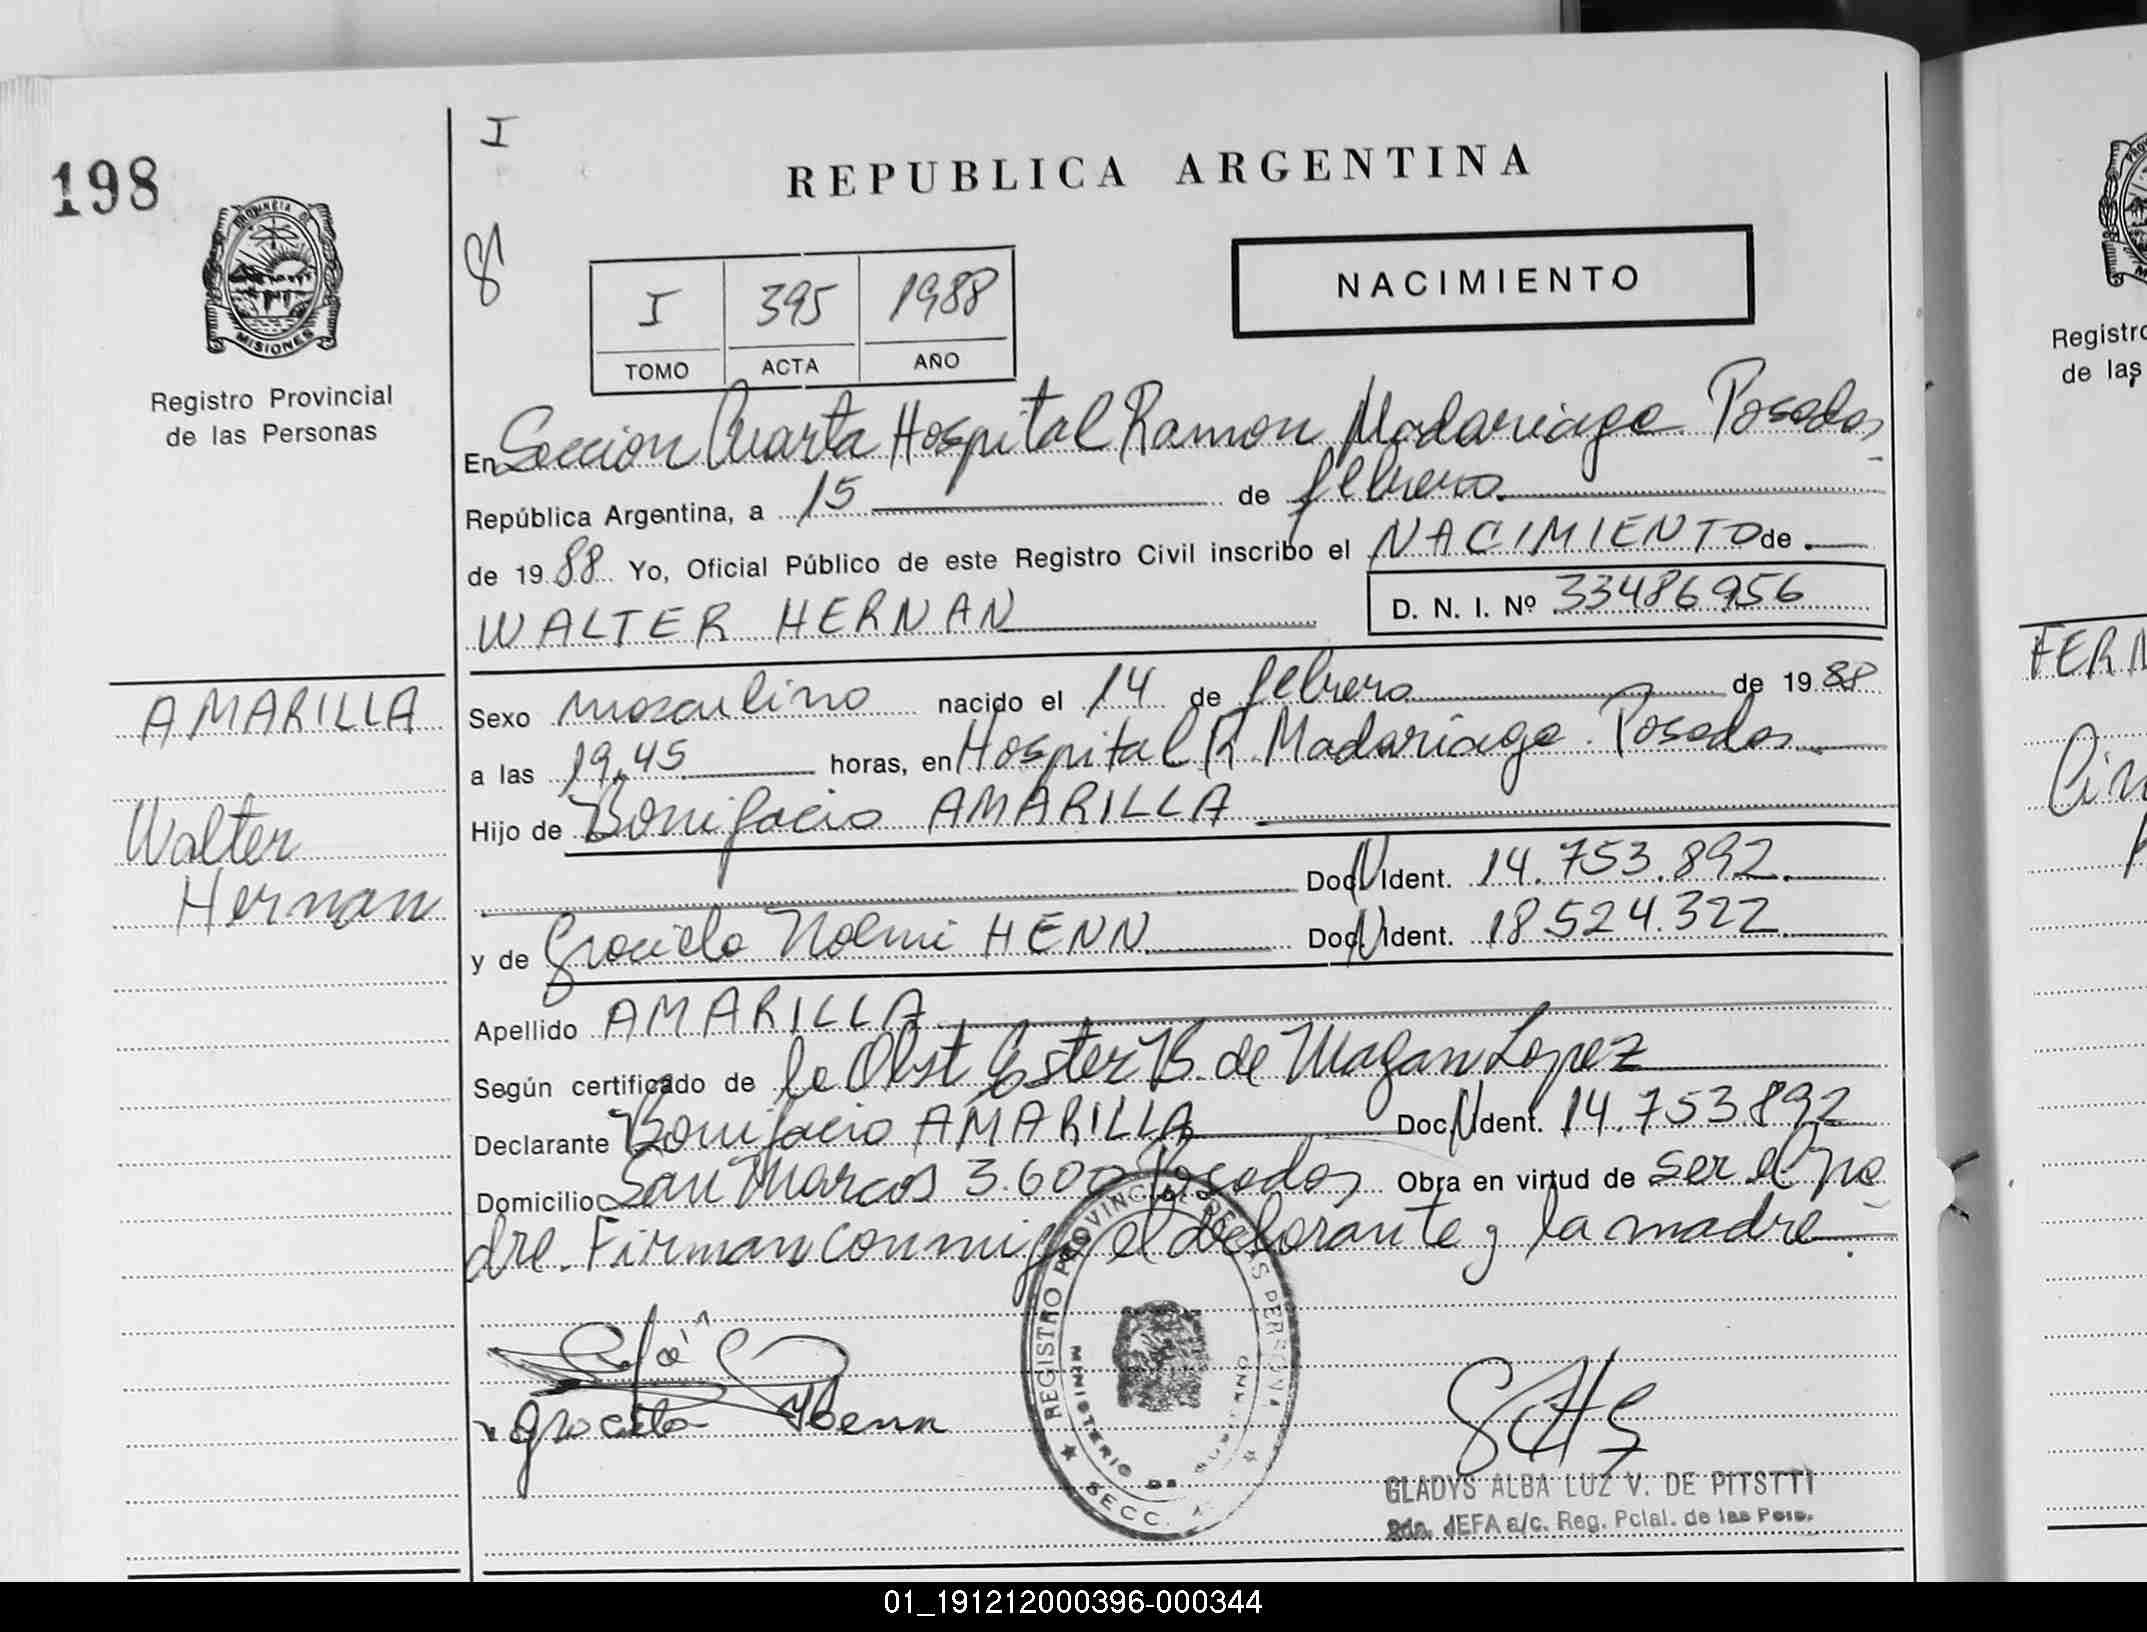 198
I
REPUBLICA ARGENTINA
PROVINCIA DE
MISIONES
Registro Provincial
de las Personas
8
I 395 1988
TOMO ACTA AÑO
NACIMIENTO
En Seccion Cuarta Hospital Ramon Madariaga Posadas
República Argentina, a 15 de febrero
de 1988 Yo, Oficial Público de este Registro Civil inscribo el NACIMIENTO de
WALTER HERNAN D. N. I. Nº 33486956
AMARILLA
Walter
Hernan
Sexo masculino nacido el 14 de febrero de 1988
a las 19,45 horas, en Hospital R. Madariaga. Posadas
Hijo de Bonifacio AMARILLA
Doc. N Ident. 14.753.892
y de Graciela Noemi HENN Doc. N Ident. 18.524.322
Apellido AMARILLA
Según certificado de la Obst Ester B. de Magan Lopez
Declarante Bonifacio AMARILLA Doc. N Ident. 14.753.892
Domicilio San Marcos 3.600 Posadas Obra en virtud de ser el pa
dre. Firman conmigo el declarante y la madre.
Graciela Henn
REGISTRO PROVINCIAL DE LAS PERSONAS
MINISTERIO DE GOBIERNO
SECC.
GLADYS ALBA LUZ V. DE PITSTTI
2da. JEFA a/c. Reg. Pcial. de las Pers.
Registro
de las
FERN
01_191212000396-000344